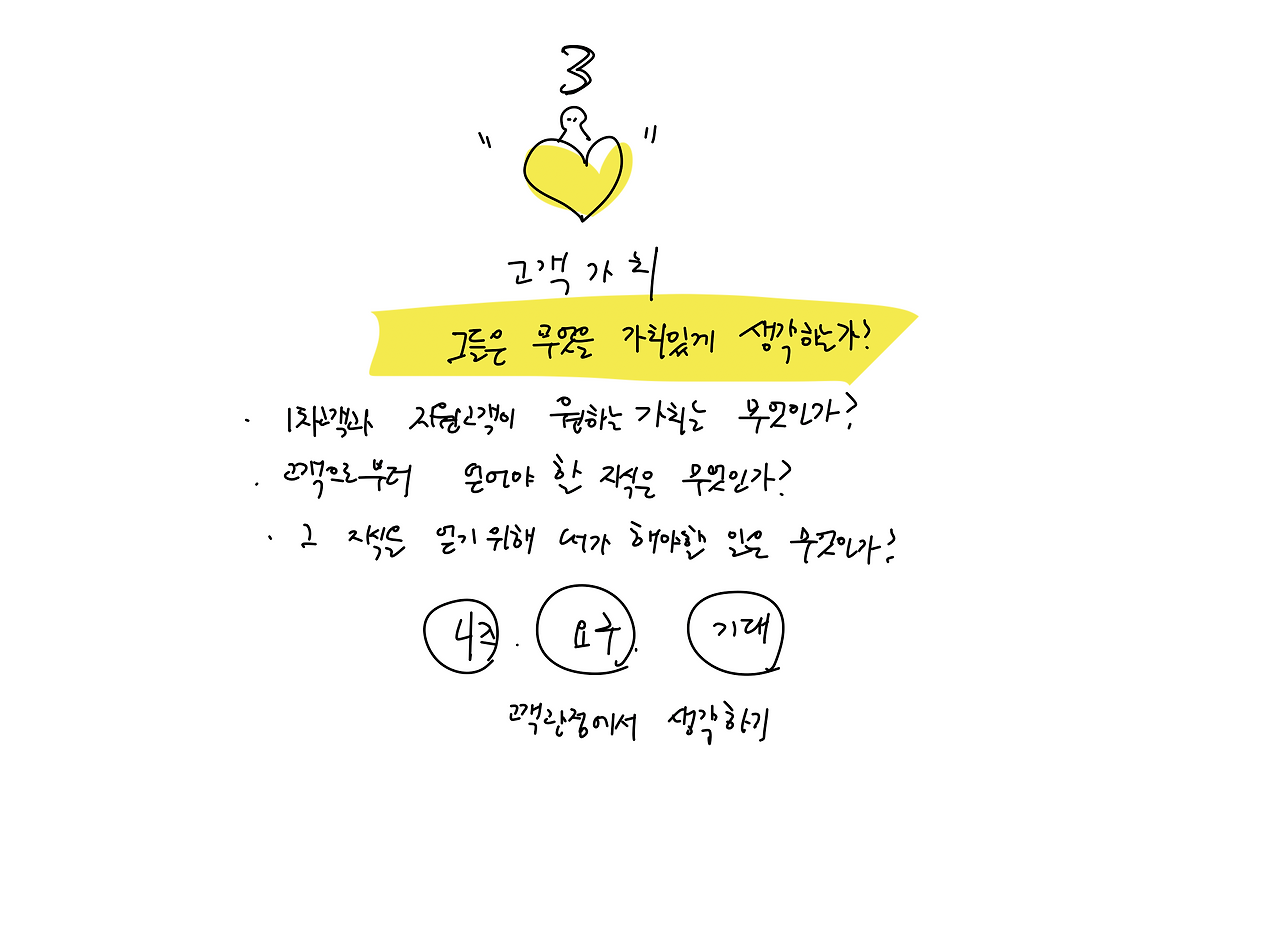 3
고객 가치
그들은 무엇을 가치있게 생각하는가?
· 1차고객과 지원고객이 원하는 가치는 무엇인가?
· 고객으로부터 얻어야 할 지식은 무엇인가?
· 그 지식을 얻기위해 내가 해야할 일은 무엇인가?
니즈 · 요구. 기대
고객관점에서 생각하기